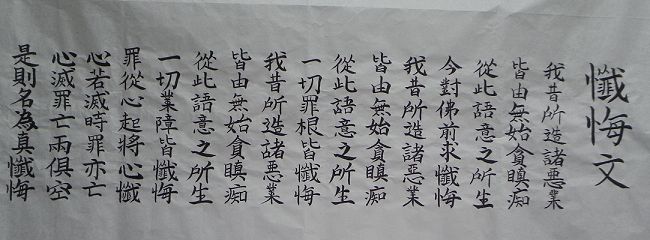 懺悔文
我昔所造諸惡業
皆由無始貪瞋痴
從此語意之所生
今對佛前求懺悔
我昔所造諸惡業
皆由無始貪瞋痴
從此語意之所生
一切罪根皆懺悔
我昔所造諸惡業
皆由無始貪瞋痴
從此語意之所生
一切業障皆懺悔
罪從心起將心懺
心若滅時罪亦亡
心滅罪亡兩俱空
是則名為真懺悔